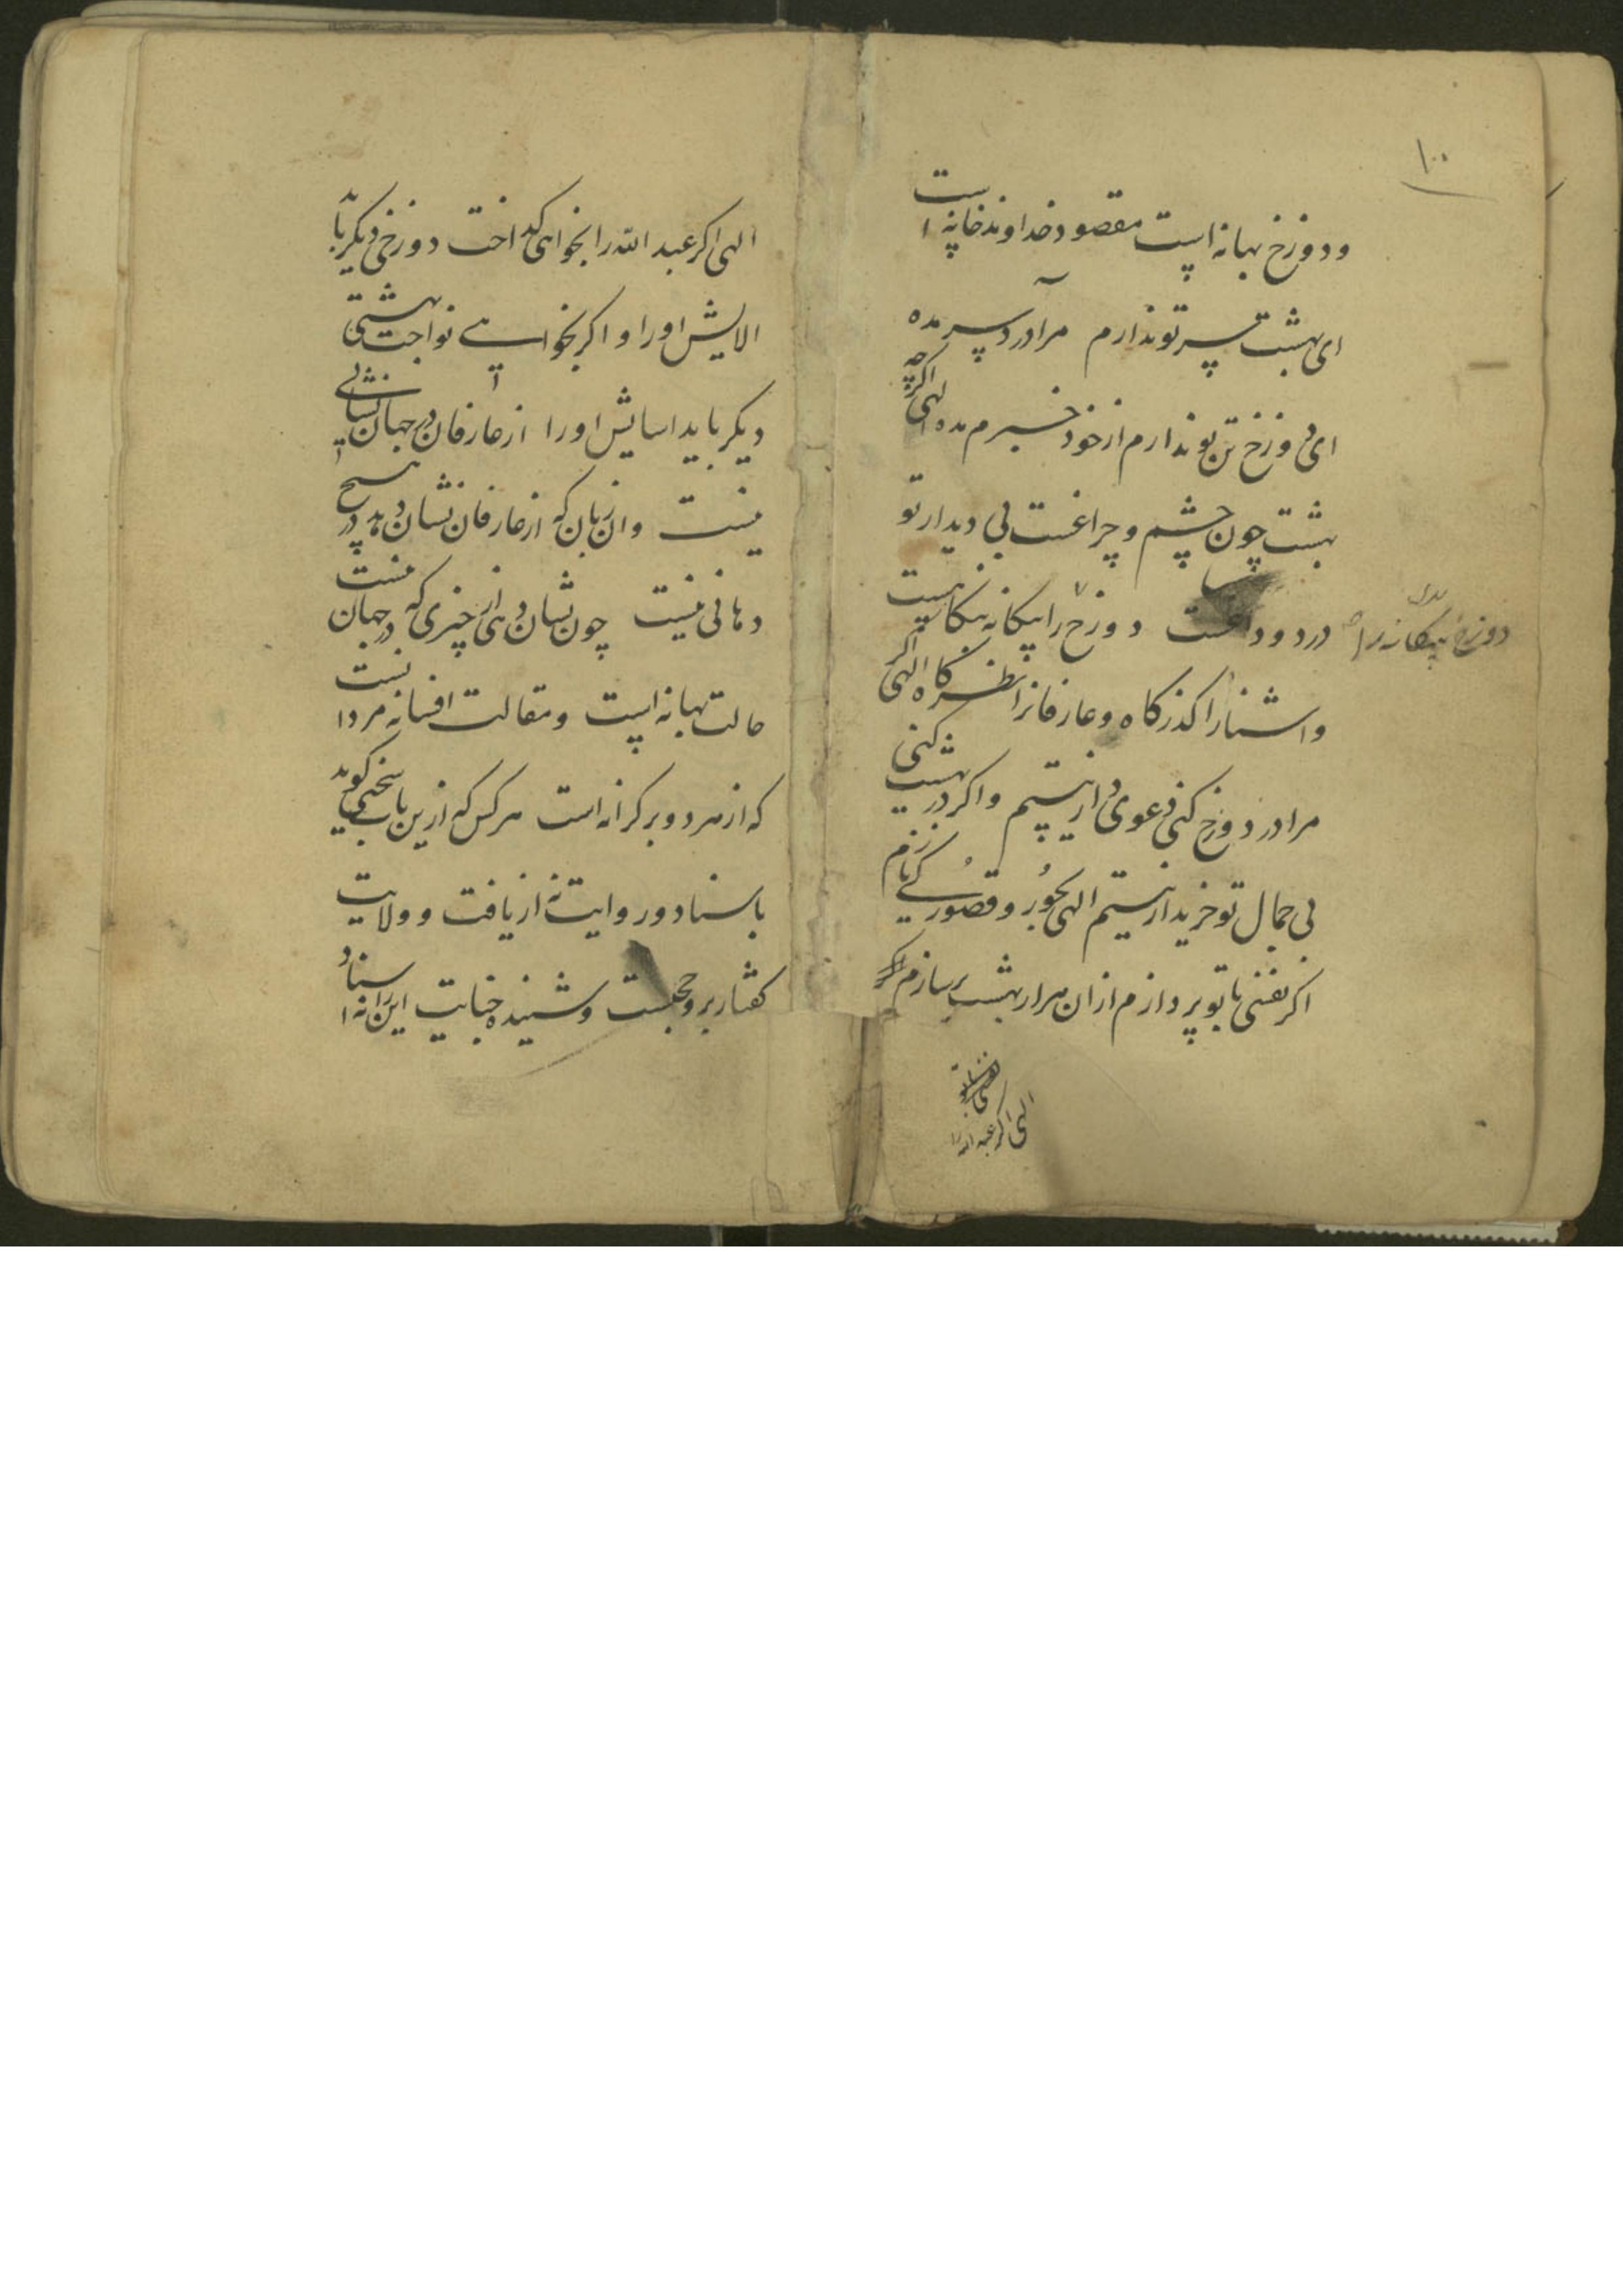 ۱۰
و دوزخ بهانه است مقصود خداوند خانه است
ای بهشت سر تو ندارم مرا درد سر مده
ای دوزخ تن تو ندارم از خود خبرم مده الهی اگرچه
بهشت چون چشم و چراغست بی دیدار تو
درد و داغست دوزخ را بیکانه بنکاهیست
دوزخ بیکانه را
و اشنا را کذرکاه و عارفانرا نظرکاه الهی اکر
مرا در دوزخ کنی دعوی دار نیستم و اکر در بهشت کنی
بی جمال تو خریدار نیستم الهی بحور و قصور کی نازم
اکر نفسی با تو پردازم ازان هزار بهشت برسازم
الهی اکر عبد الله را
الهی اکر عبد الله را بخواهی کداخت دوزخی دیکر باید
الایش او را و اکر بخواهی نواخت بهشتی
دیکر باید اسایش او را از عارفان در جهان نشانی
نیست وان زبان که از عارفان نشان دهد در هیچ
دهانی نیست چون نشان دهی از چیزی که در جهان نیست
حالت بهانه است و مقالت افسانه مرد انست
که از هر دو بر کرانه است هر کس که ازین باب سخنی کوید
باسناد و روایت نه از یافت و ولایت
کفتار برو حجتست و شنیده جنایت این را نه اسناد